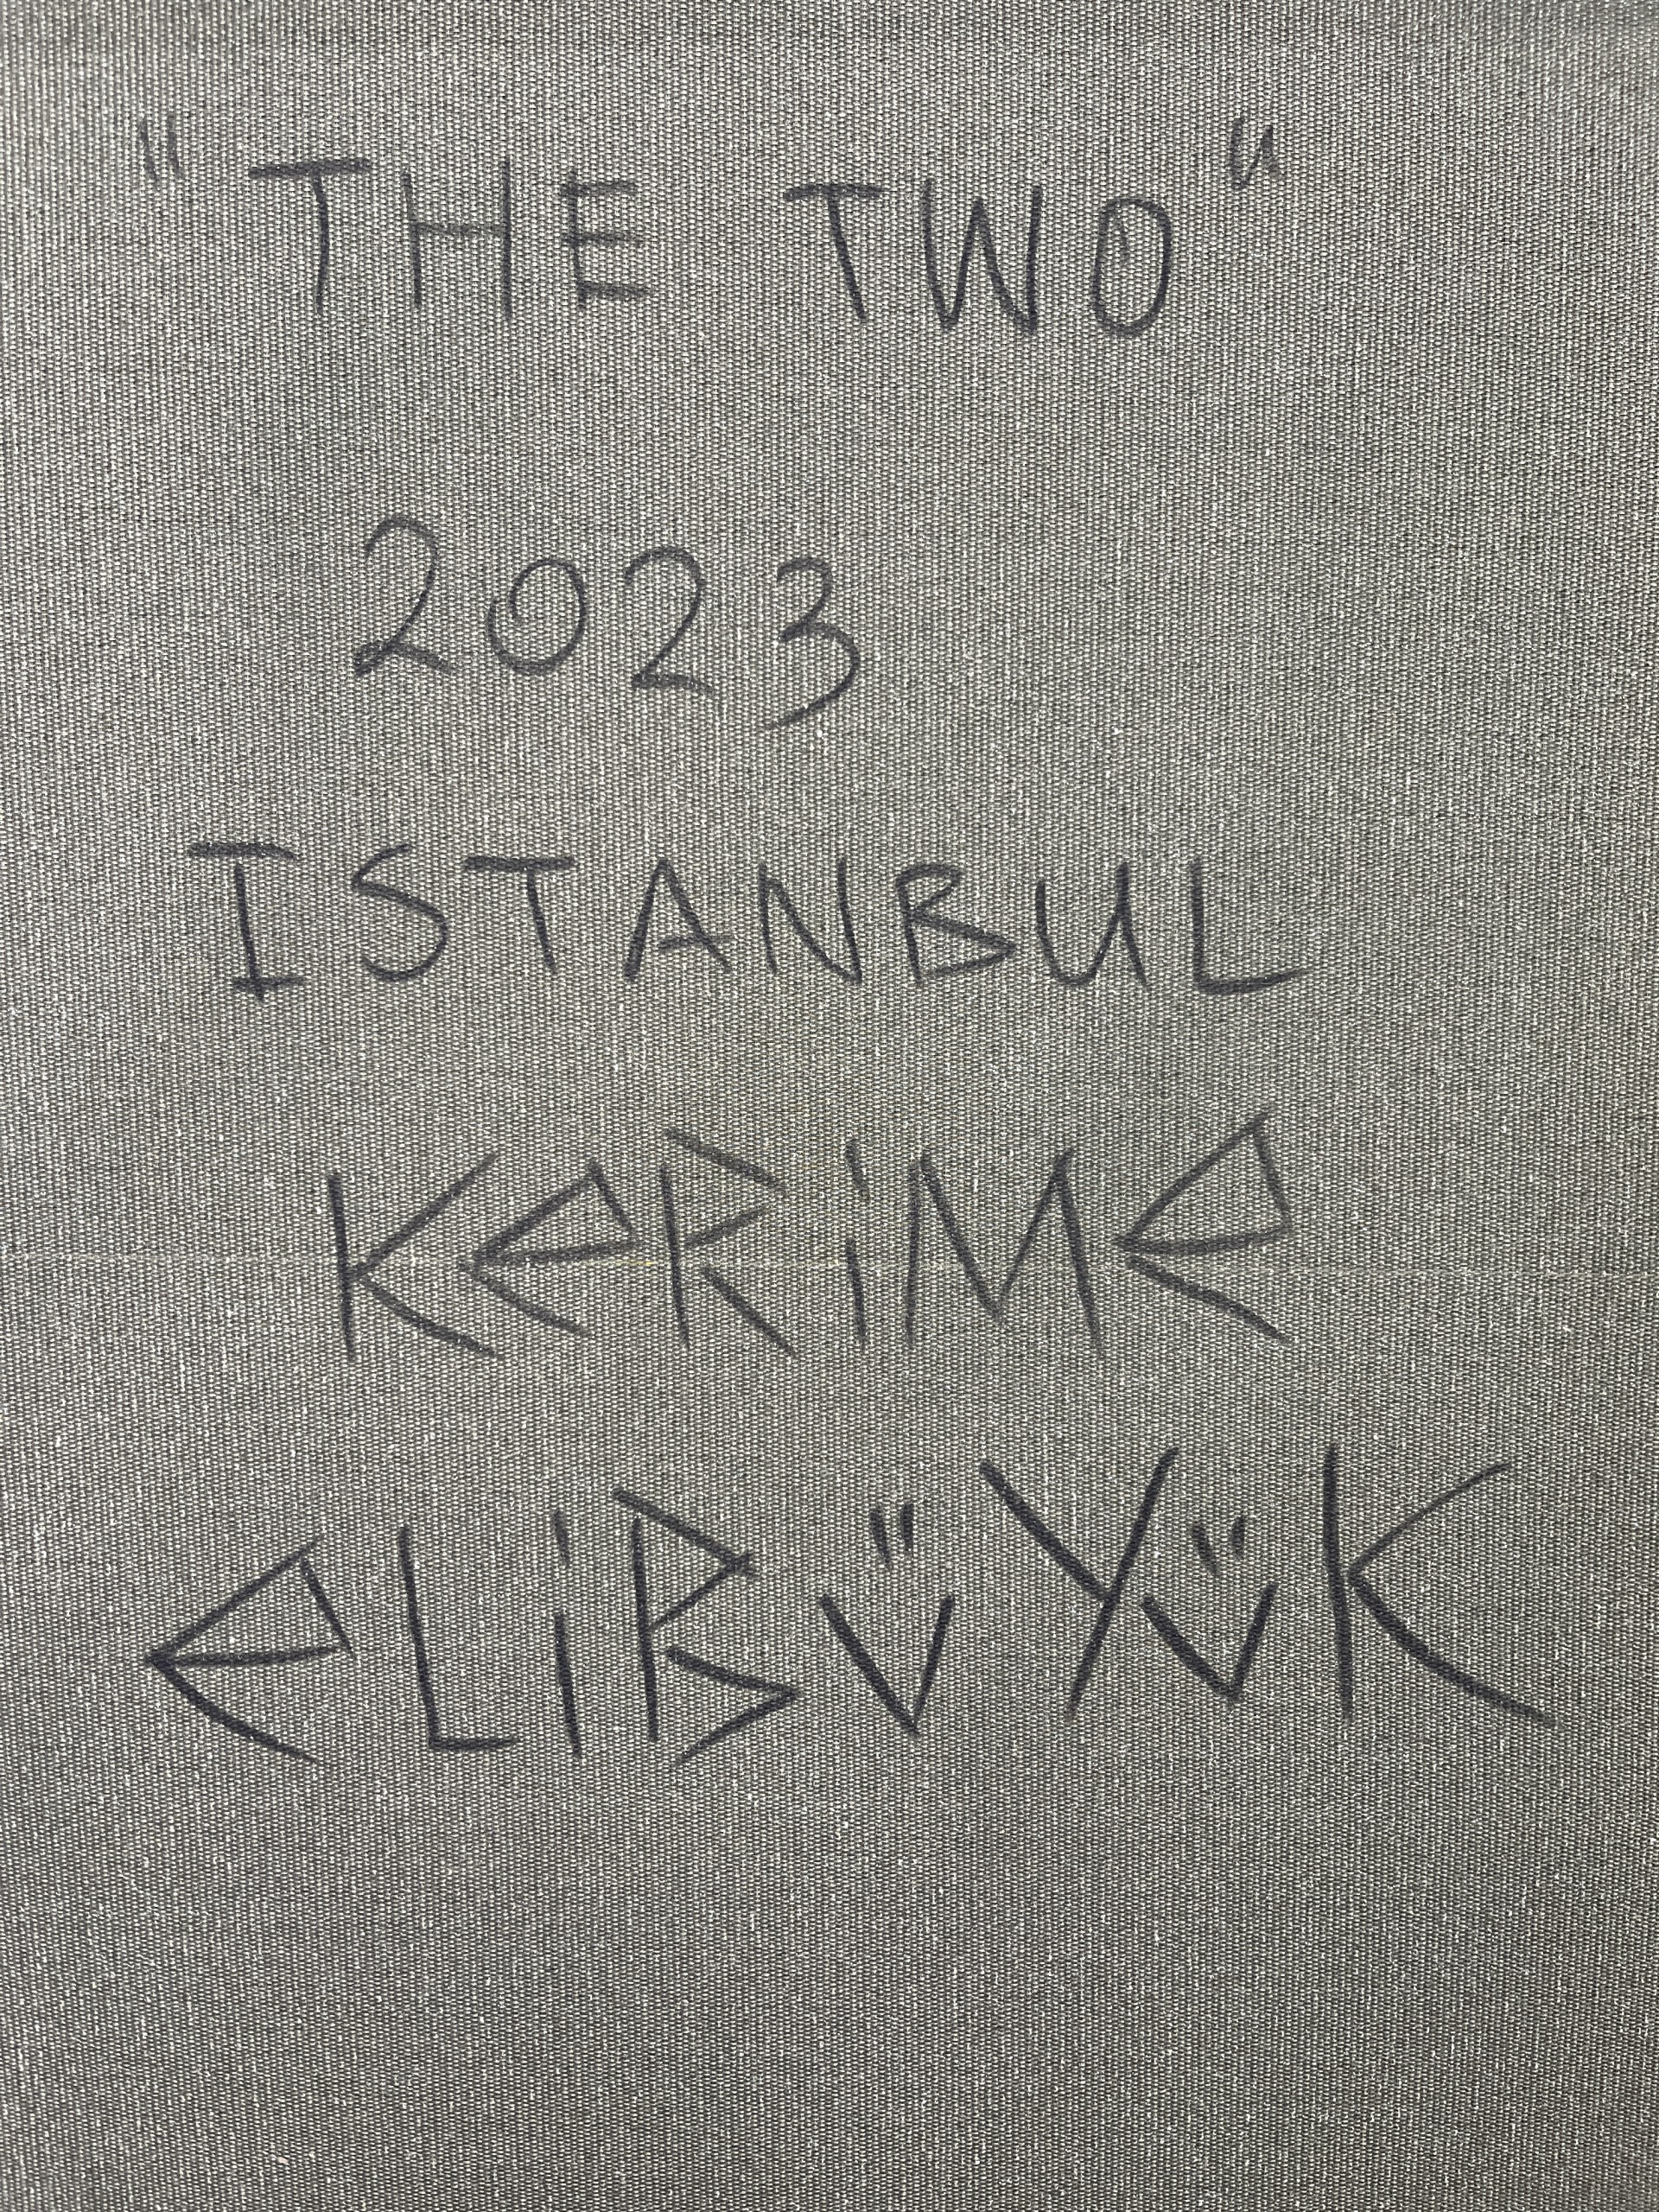 "THE TWO"
2023
ISTANBUL
KeRiMe
eLiBüYüK